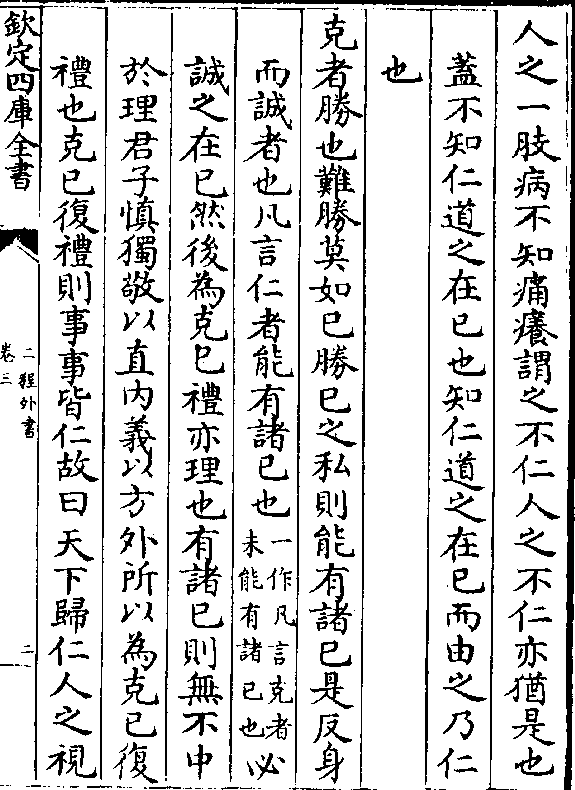 人之一肢病不知痛癢謂之不仁人之不仁亦猶是也
蓋不知仁道之在已也知仁道之在已而由之乃仁
也
克者勝也難勝莫如已勝已之私則能有諸已是反身
而誠者也凡言仁者能有諸已也一作凡言克者必
未能有諸已也
誠之在已然後為克已禮亦理也有諸已則無不中
於理君子慎獨敬以直内義以方外所以為克已復
禮也克已復禮則事事皆仁故曰天下歸仁人之視
欽定四庫全書
二程外書
卷三
二